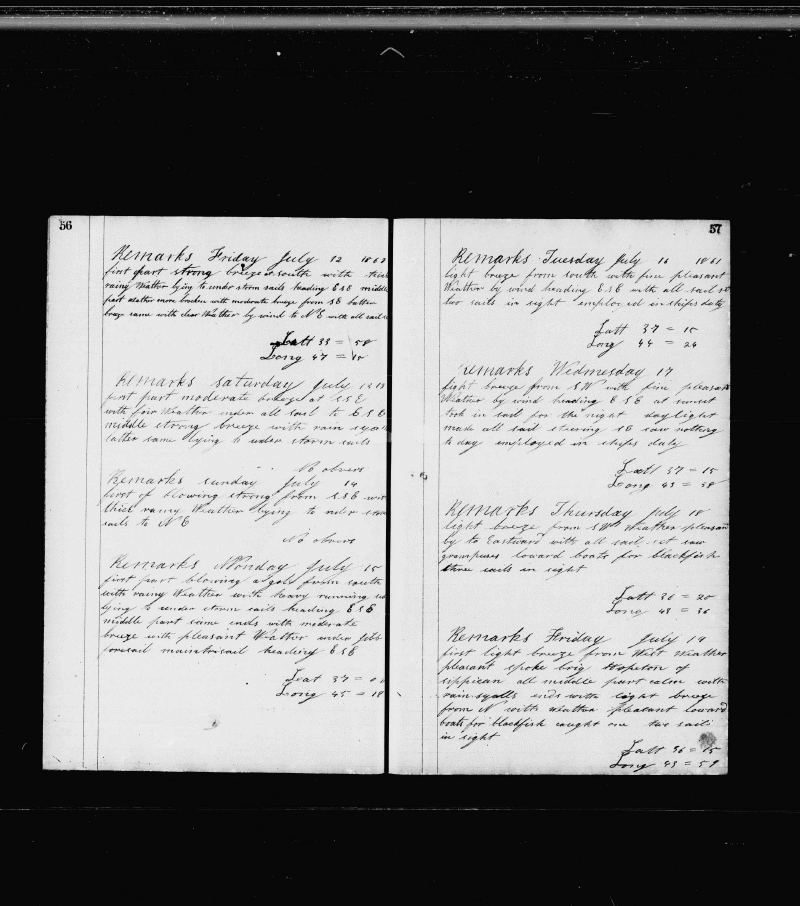 56
Remarks Friday July 12 186
first part strong breeze at south with thick
rainy Weather lying to under storm sails heading E S E middle
part weather more broken with moderate breeze from S E latter
breeze same with clear Weather by wind to N E with all sail
Latt 33 = 58
Long 47 = 10
Remarks saturday July 13
first part moderate breeze at S S E
with fair Weather under all sail to E S E
middle strong breeze with rain
latter same lying to under storm sails
No observs
Remarks sunday July 14
first of blowing strong from S S E with
thick rainy Weather lying to under storm
sails to N E
No observs
Remarks Monday July 15
first part blowing a gale from south
with rainy Weather with heavy running
lying to under storm sails heading E S E
middle part same ends with moderate
breeze with pleasant Weather under
foresail maintrisail heading E S E
Lat 37 = 0
Long 45 = 18
57
Remarks Tuesday July 16 1861
light breeze from south with fine pleasant
Weather by wind heading E S E with all sail set
two sails in sight employed in ships duty
Latt 37 = 15
Long 44 = 24
Remarks Wednesday 17
light breeze from S W with fine pleasant
Weather by wind heading E S E at sunset
took in sail for the night daylight
made all sail steering S E saw nothing
to day employed in ships duty
Latt 37 = 15
Long 43 = 58
Remarks Thursday July 18
light breeze from S W Weather pleasant
by to Eastward with all sail set saw
grampuses loward boats for blackfish
three sails in sight
Latt 36 = 20
Long 43 = 36
Remarks Friday July 19
first light breeze from West Weather
pleasant spoke brig of
sippican all middle part calm with
rain squalls ends with light breeze
from N with weather pleasant loward
boats for blackfish caught one two sails
in sight
Latt 36 = 15
Long 43 = 59